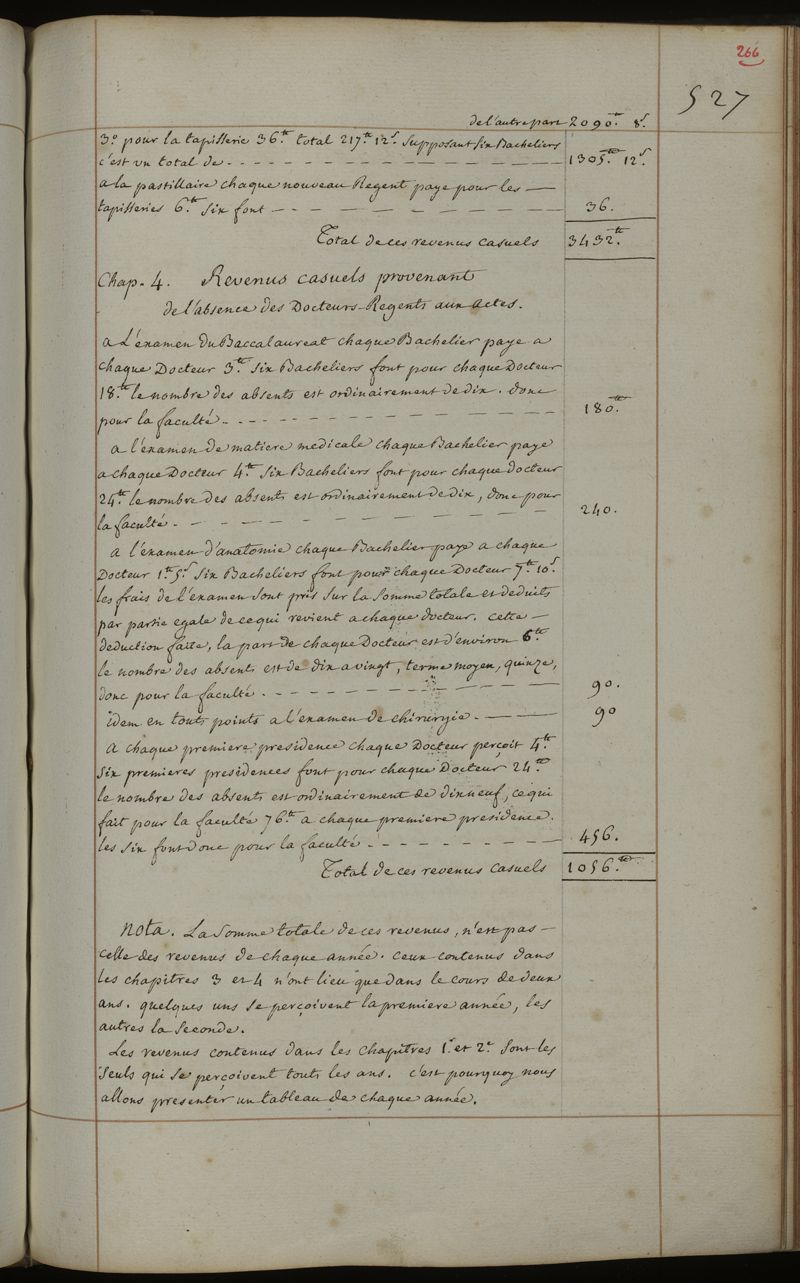 266
527
de l'autre part 2090.tt 8.s
3.o pour la tapisserie 36.tt total 217.tt 12.s Supposant Six Bacheliers
c'est un total de - - - - - - - - 1305.tt 12.s
a la pastillaire chaque nouveau Regent paye pour les —
tapisseries 6.tt Six font - - - - - - - - 36.
Total de ces revenus casuels 3432.tt
Chap. 4. Revenus casuels provenant
de l'absence des Docteurs-Regents aux actes.
a L'examen du Baccalaureat chaque Bachelier paye a
chaque Docteur 3.tt Six Bacheliers font pour chaque Docteur
18.tt le nombre des absents est ordinairement de dix. donc
pour la faculté - - - - - - - - 180.tt
a l'examen de matiere medicale chaque Bachelier paye
a chaque Docteur 4.tt Six Bacheliers font pour chaque docteur
24.tt le nombre des absents est ordinairement de dix, donc pour
la faculté - - - - - - - - 240.
a l'examen d'anatomie chaque Bachelier paye a chaque
Docteur 1.tt 5.s Six Bacheliers font pour chaque Docteur 7.tt 10.s
les frais de l'examen sont pris sur la somme totale et deduits
par partie egale de ce qui revient a chaque docteur. cette —
deduction faite, la part de chaque Docteur est d'environ 6.tt
le nombre des absents est de dix a vingt, terme moyen, quinze,
donc pour la faculté - - - - - - - - 90.
idem en touts points a l'examen de chirurgie. - — — 90
a chaque premiere presidence chaque Docteur perçoit 4.tt
Six premieres presidences font pour chaque Docteur 24.tt
le nombre des absents est ordinairement de dixneuf, ce qui
fait pour la faculté 76.tt a chaque premiere presidence.
les Six font donc pour la faculté - - - - - - - - 456.
Total de ces revenus casuels 1056.tt
Nota. La Somme totale de ces revenus, n'est pas —
celle des revenus de chaque année. ceux contenus dans
les chapitres 3 et 4 n'ont lieu que dans le cours de deux
ans. quelques uns se perçoivent la premiere année, les
autres la seconde.
Les revenus contenus dans les chapitres 1.r et 2.e sont les
seuls qui se perçoivent touts les ans. c'est pourquoy nous
allons presenter un tableau de chaque année.